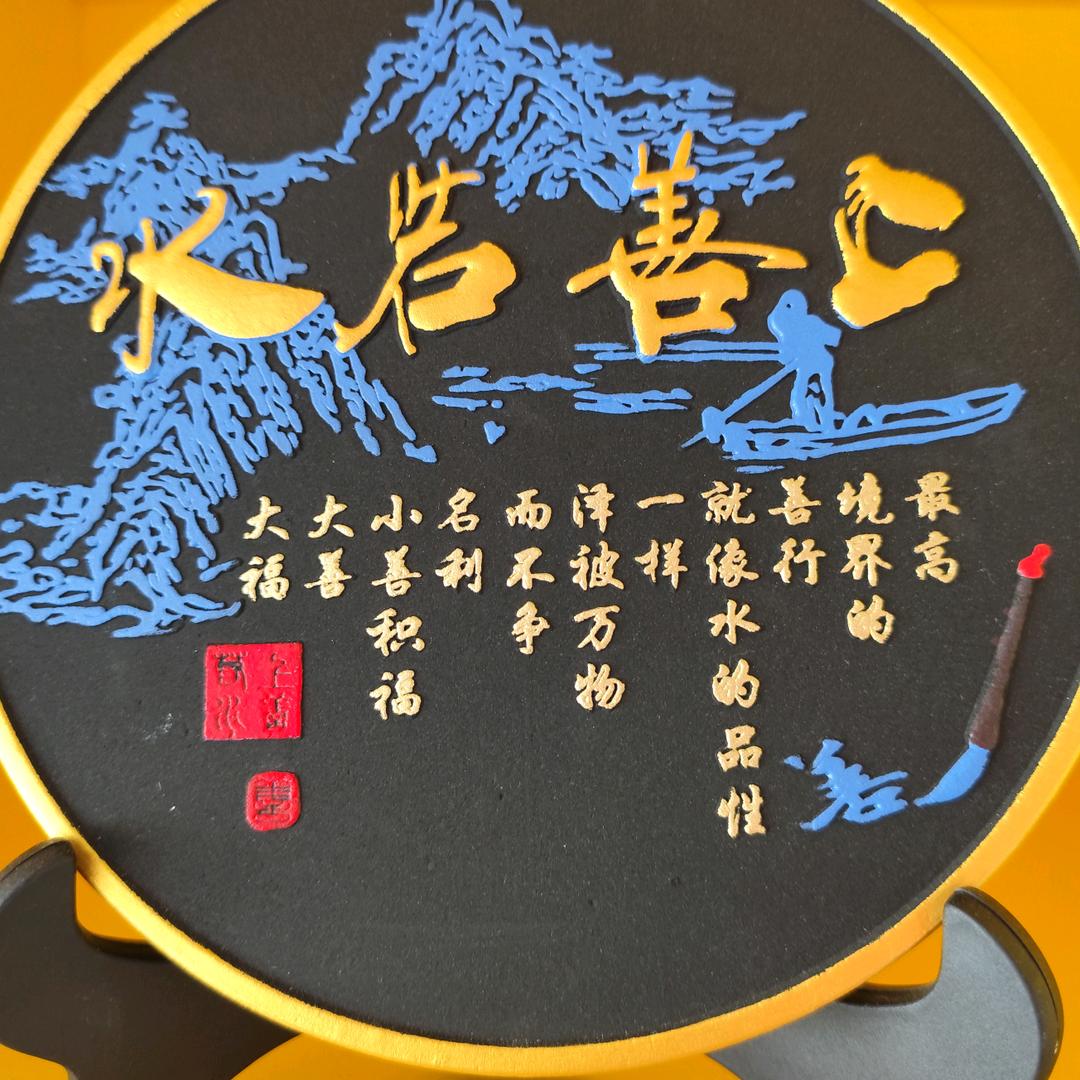 上善若水
最高
境界的
善行
就像水的品性
一样
泽被万物
而不争
名利
小善积福
大善
大福
上善
若水
善